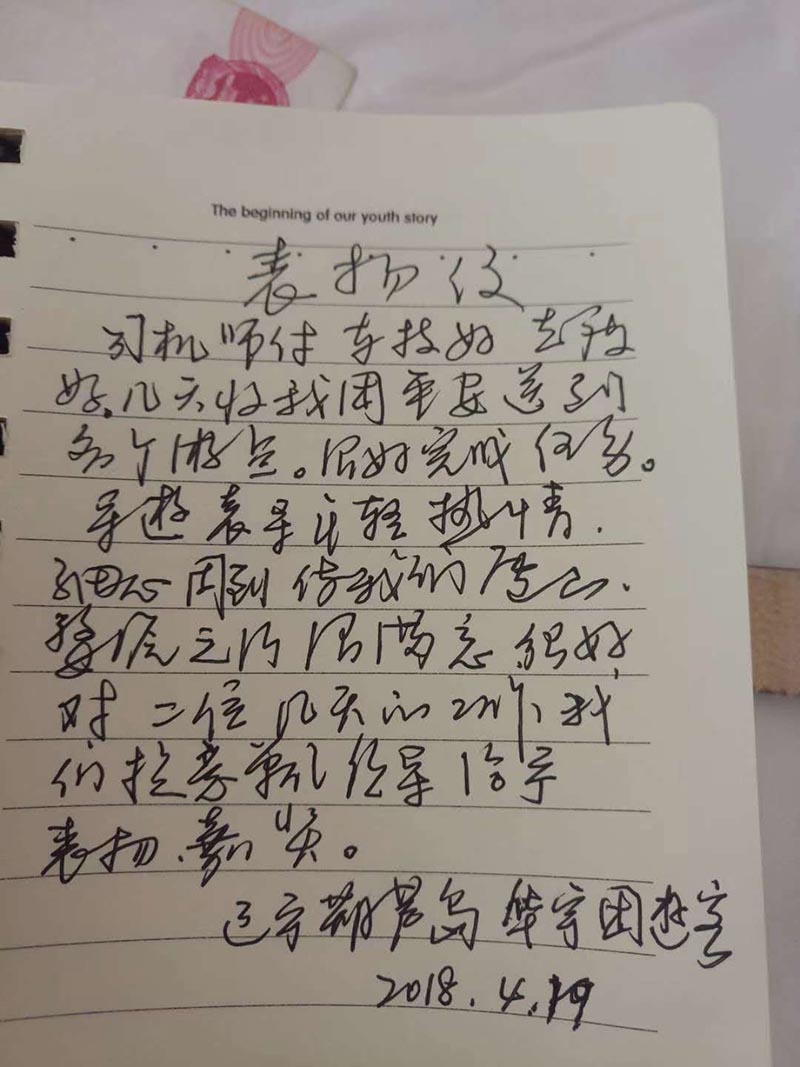 The beginning of our youth story
表扬信
司机师付 车技好 态度
好.几天将我团平安送到
各个游点。很好完成任务。
导游袁导年轻热情.
细心周到 使我们
之行很满意 很好
对二位几天的工作,我
们 领导给予
表扬.嘉奖。
辽宁葫芦岛 华宇团游客
2018.4.19